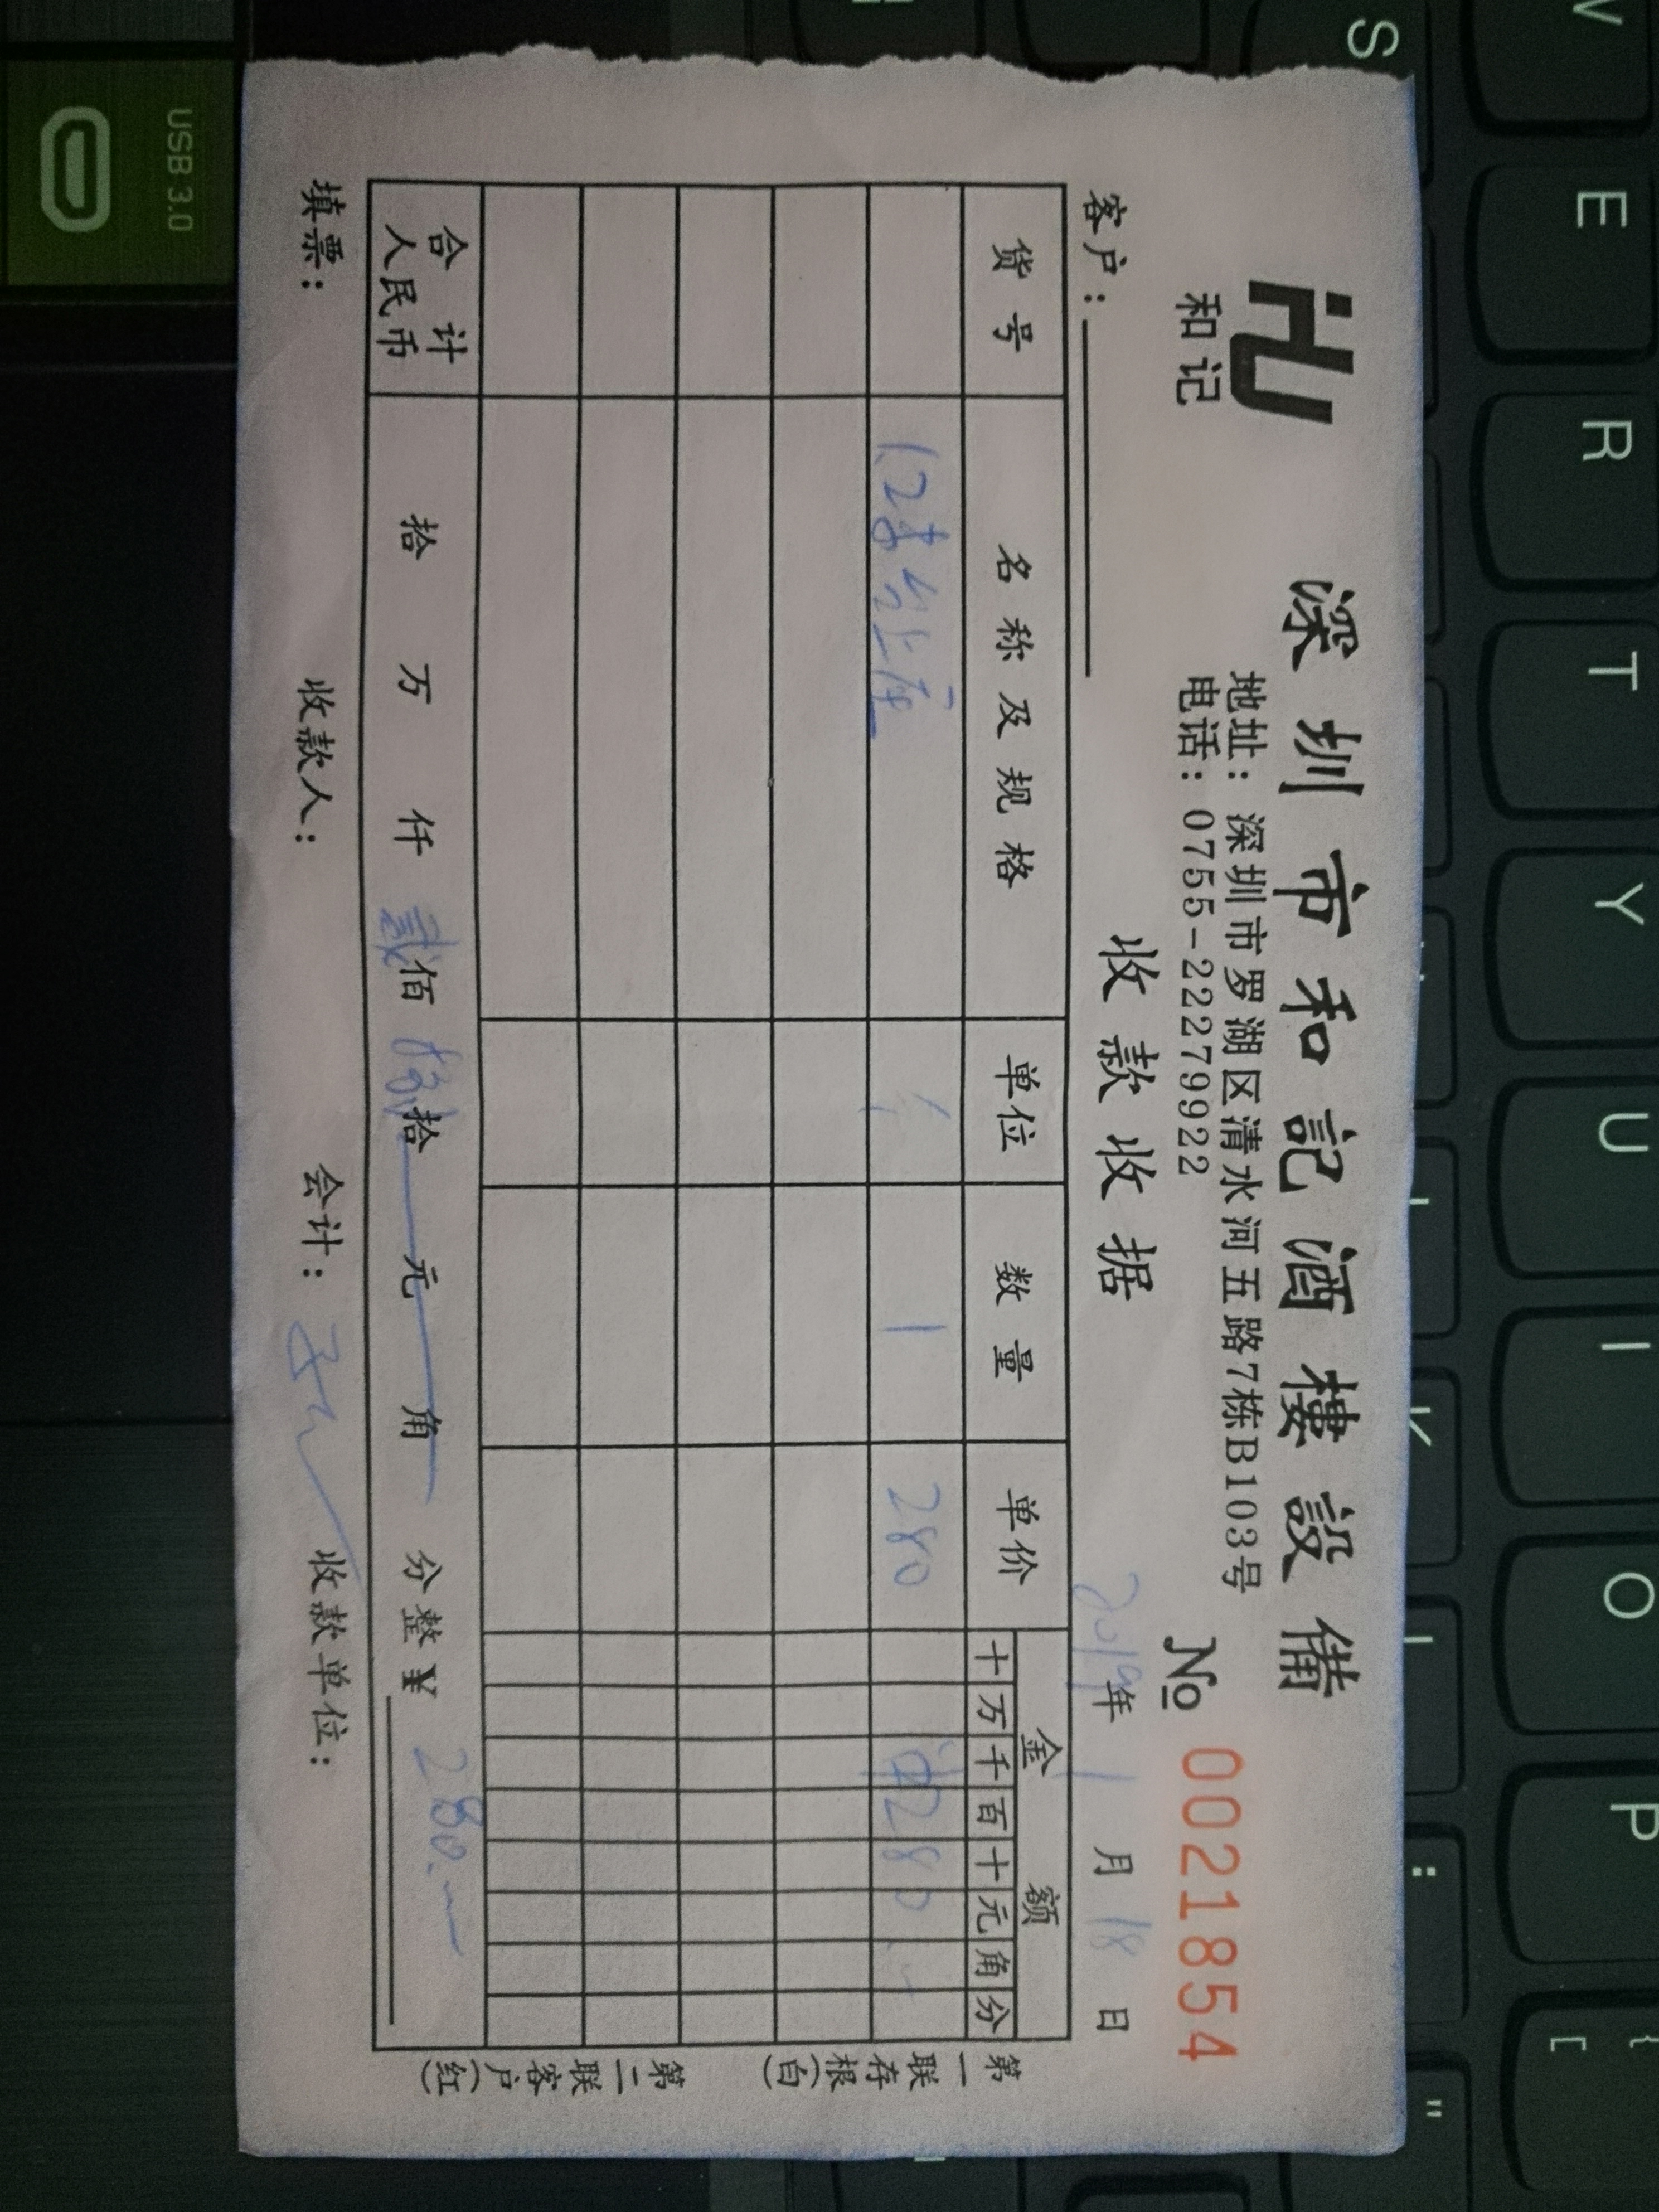 W E R T Y U I O P { [
S K L : "
深圳市和記酒樓設備
地址：深圳市罗湖区清水河五路7栋B103号
和记
电话：0755-22279922
№ 0021854
收款收据
客户：
2019年1月18日
货号 名称及规格 单位 数量 单价 金额
十 万 千 百 十 元 角 分
1.2 台上座 个 1 280 280.-
合计
人民币
拾 万 仟 贰佰 捌拾 元 角 分整 ¥ 280.-
填票： 收款人： 会计： 收款单位：
第一联存根(白) 第二联客户(红)
USB 3.0